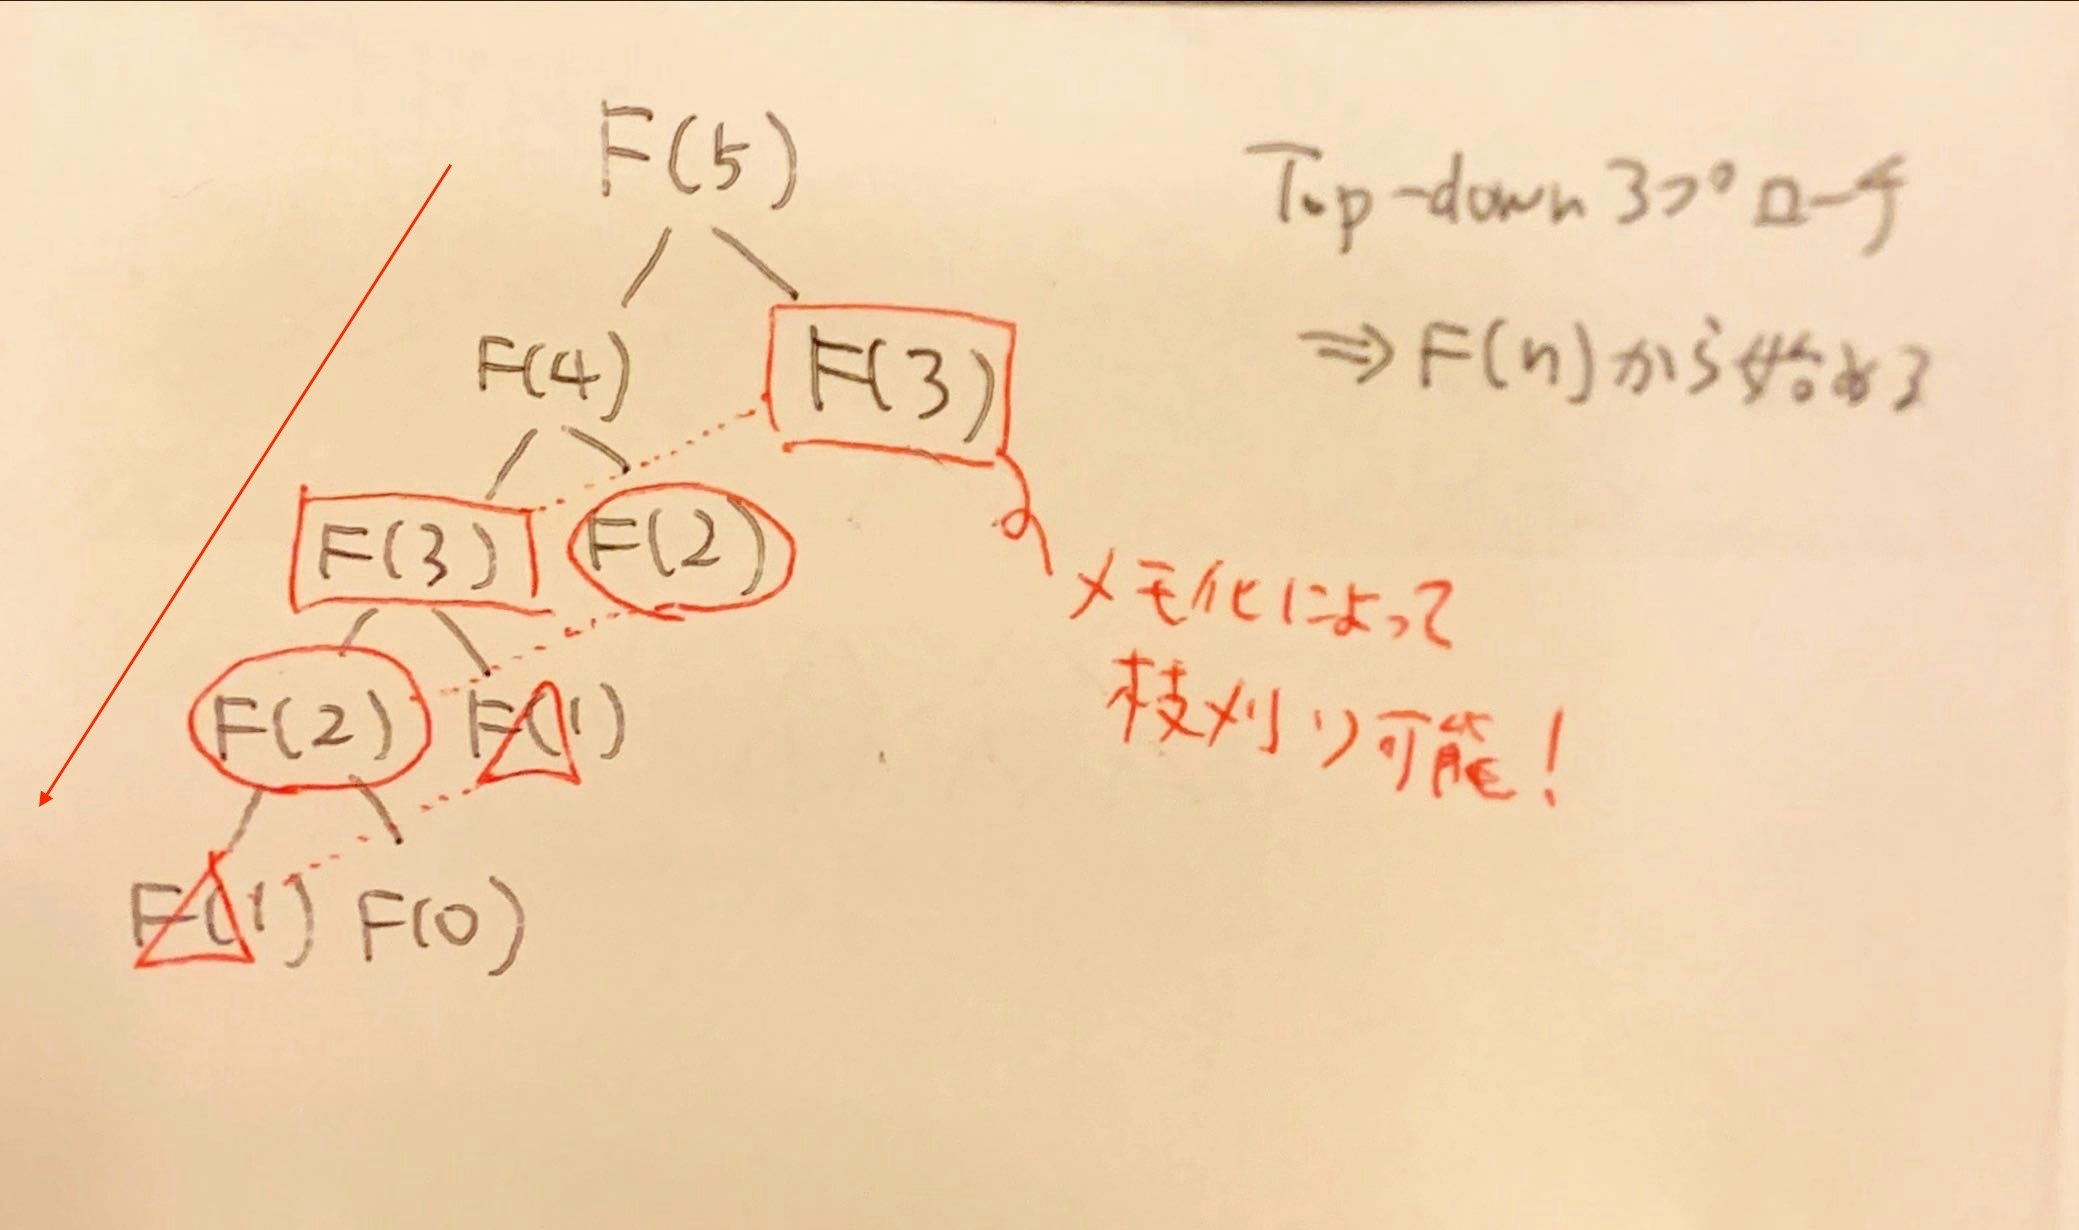 F(5)
Top-down アプローチ
F(4) F(3)
⇒ F(n)から始める
F(3) F(2)
メモ化によって
枝刈り可能!
F(2) F(1)
F(1) F(0)